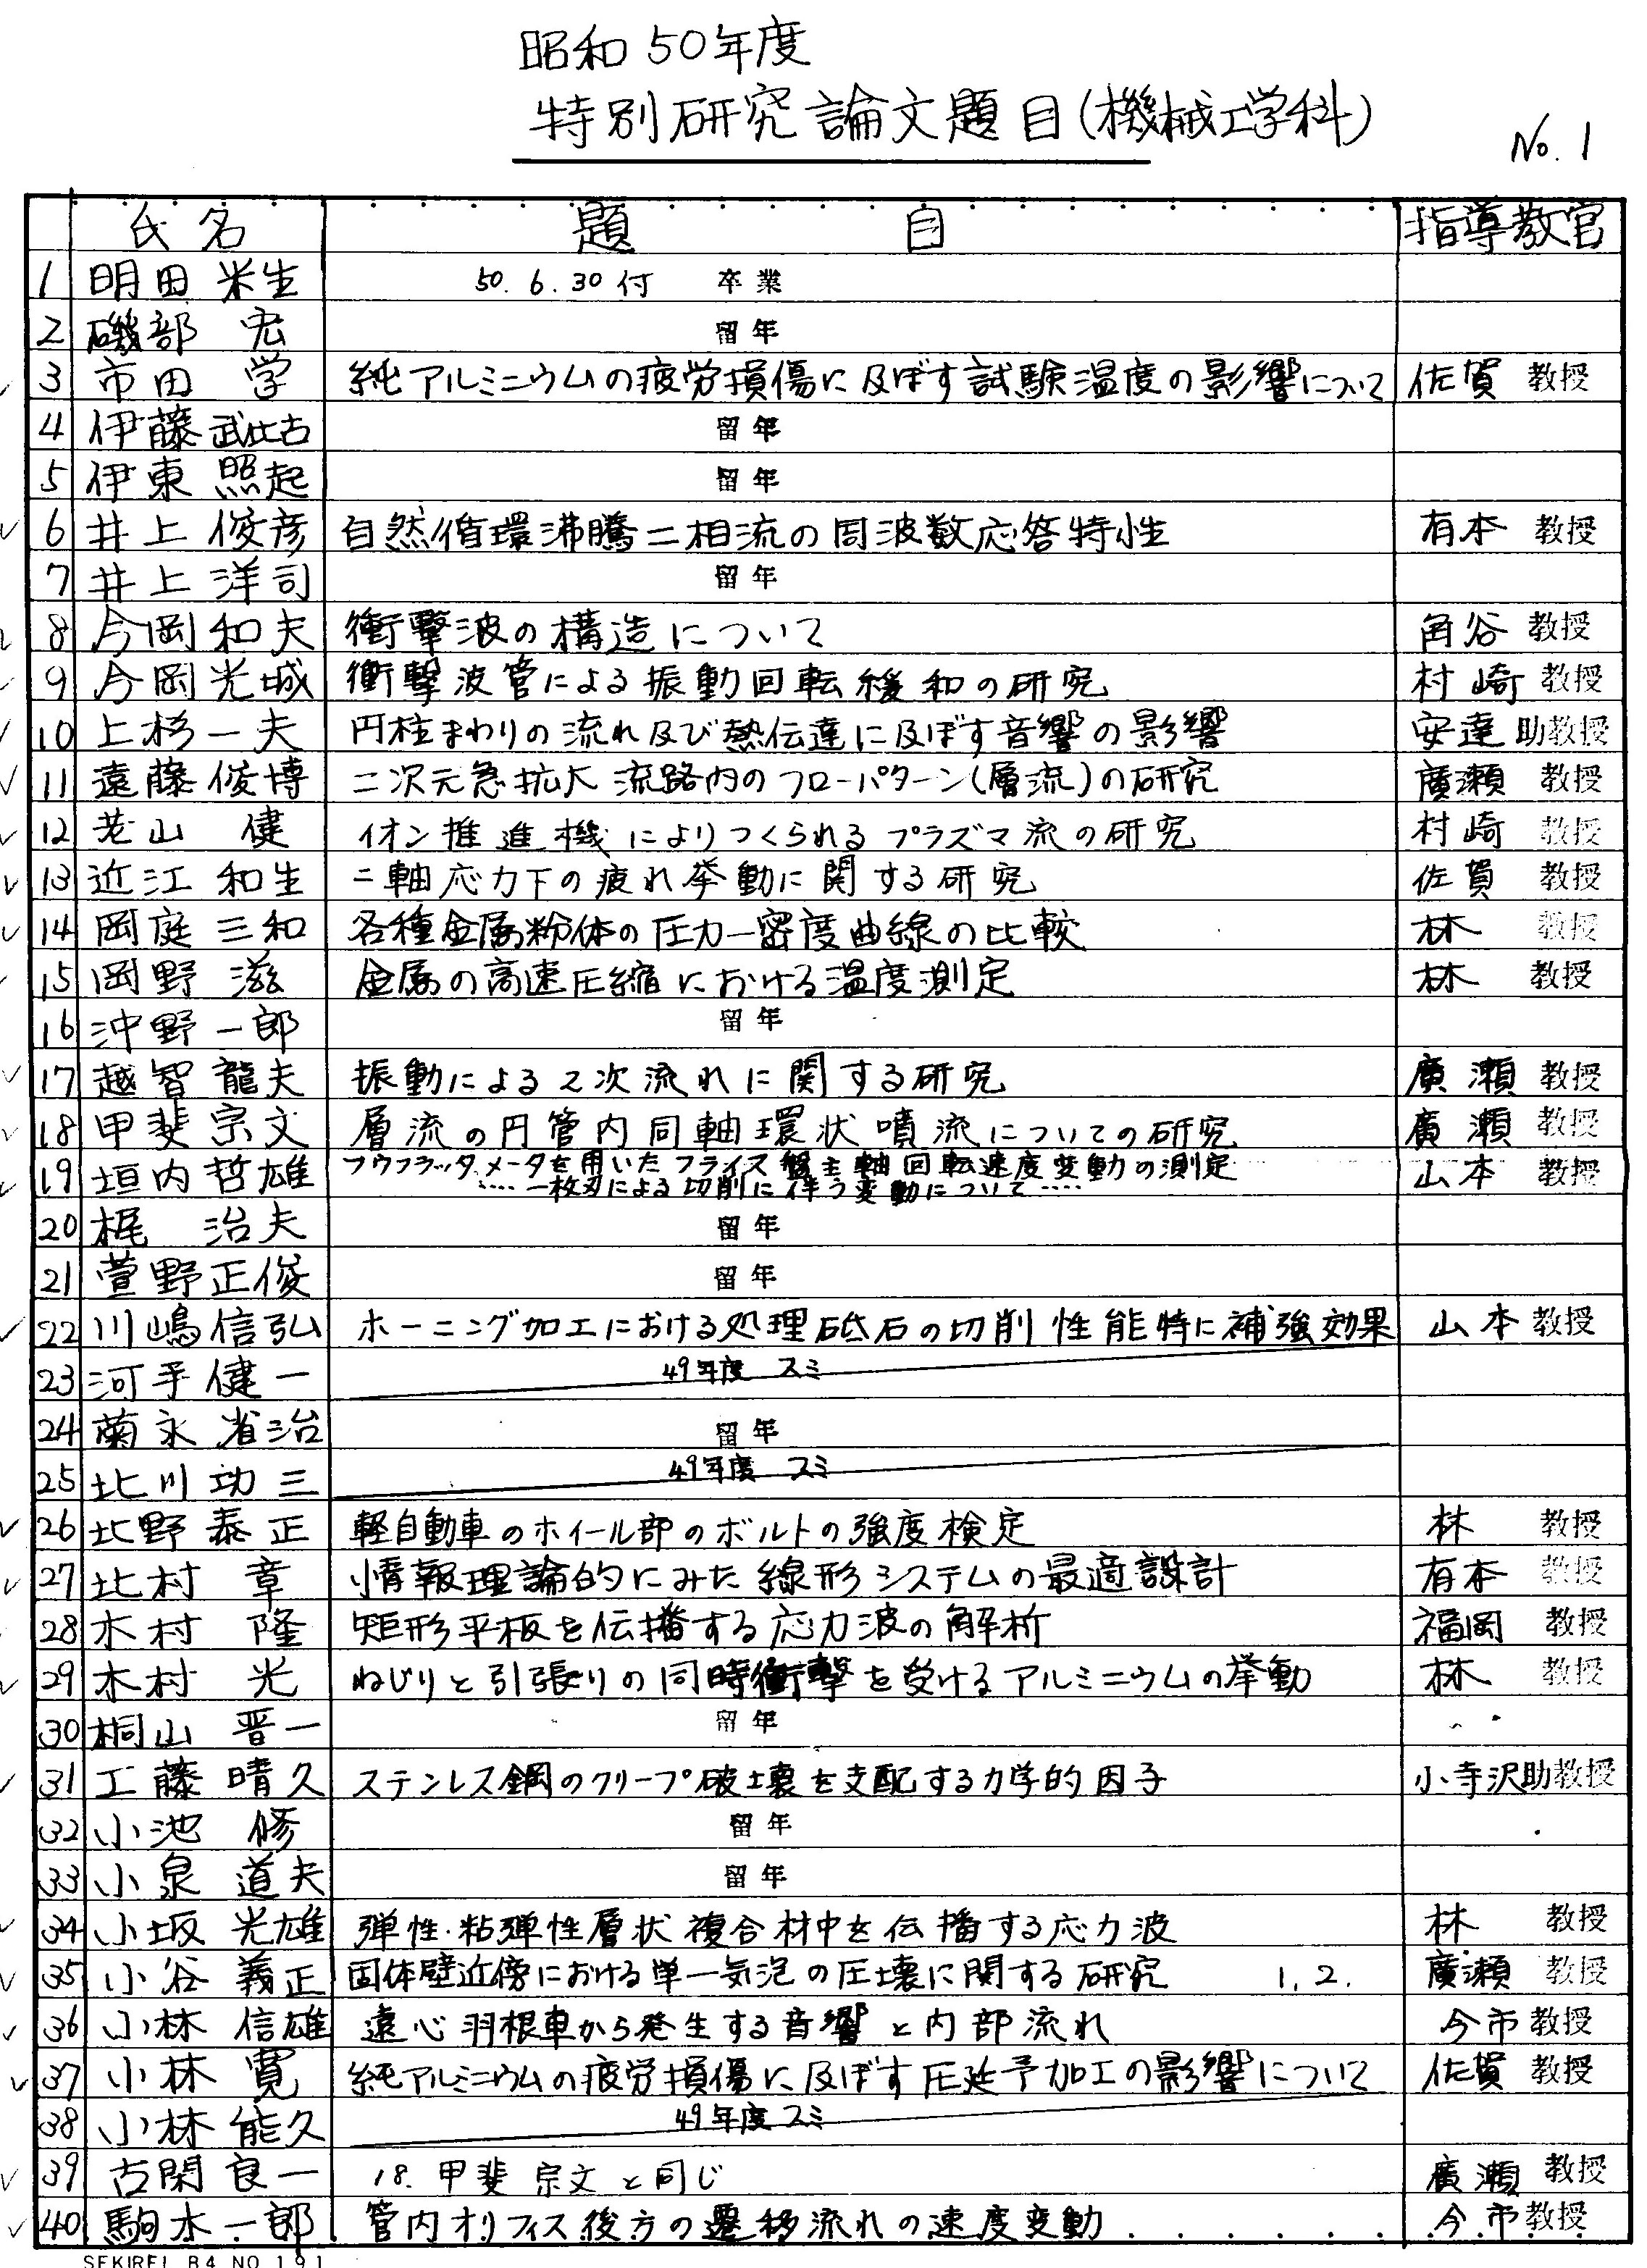 昭和50年度
特別研究論文題目(機械工学科)
No. 1
氏名 題 目 指導教官
1 明田 米生 50.6.30付 卒業
2 磯部 宏 留年
3 市田 学 純アルミニウムの疲労損傷に及ぼす試験温度の影響について 佐賀 教授
4 伊藤 武比古 留年
5 伊東 照起 留年
6 井上 俊彦 自然循環沸騰二相流の周波数応答特性 有本 教授
7 井上 洋司 留年
8 今岡 和夫 衝撃波の構造について 角谷 教授
9 今岡 光城 衝撃波管による振動回転緩和の研究 村崎 教授
10 上杉 一夫 円柱まわりの流れ及び熱伝達に及ぼす音響の影響 安達 助教授
11 遠藤 俊博 二次元急拡大流路内のフローパターン(層流)の研究 廣瀬 教授
12 老山 健 イオン推進機によりつくられるプラズマ流の研究 村崎 教授
13 近江 和生 二軸応力下の疲れ挙動に関する研究 佐賀 教授
14 岡庭 三和 各種金属粉体の圧力一密度曲線の比較 林 教授
15 岡野 滋 金属の高速圧縮における温度測定 林 教授
16 沖野 一郎 留年
17 越智 龍夫 振動による2次流れに関する研究 廣瀬 教授
18 甲斐 宗文 層流の円管内同軸環状噴流についての研究 廣瀬 教授
19 垣内 哲雄 フウフラッタメータを用いたフライス盤主軸回転速度変動の測定 山本 教授
‥‥一枚刃による切削に伴う変動について‥‥
20 梶 治夫 留年
21 萱野 正俊 留年
22 川嶋 信弘 ホーニング加工における処理砥石の切削性能特に補強効果 山本 教授
23 河手 健一 49年度 スミ
24 菊永 省治 留年
25 北川 功三 49年度 スミ
26 北野 泰正 軽自動車のホイール部のボルトの強度検定 林 教授
27 北村 章 情報理論的にみた線形システムの最適設計 有本 教授
28 木村 隆 矩形平板を伝播する応力波の解析 福岡 教授
29 木村 光 ねじりと引張りの同時衝撃を受けるアルミニウムの挙動 林 教授
30 桐山 晋一 留年
31 工藤 晴久 ステンレス鋼のクリープ破壊を支配する力学的因子 小寺沢 助教授
32 小池 修 留年
33 小泉 道夫 留年
34 小坂 光雄 弾性・粘弾性層状複合材中を伝播する応力波 林 教授
35 小谷 義正 固体壁近傍における単一気泡の圧壊に関する研究 1, 2. 廣瀬 教授
36 小林 信雄 遠心羽根車から発生する音響と内部流れ 今市 教授
37 小林 寛 純アルミニウムの疲労損傷に及ぼす圧延予加工の影響について 佐賀 教授
38 小林 能久 49年度 スミ
39 古閑 良一 18. 甲斐 宗文と同じ 廣瀬 教授
40 駒木 一郎 管内オリフィス後方の遷移流れの速度変動 今市 教授
SEKIREI B4 NO 191